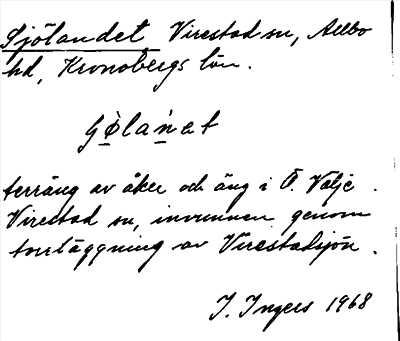 Sjölandet Virestad sn, Allbo
hd, Kronobergs län.
terräng av åker och äng i Ö. Välje.
Virestad sn, invunnen genom
torrläggning av Virestadsjön.
I. Ingers 1968